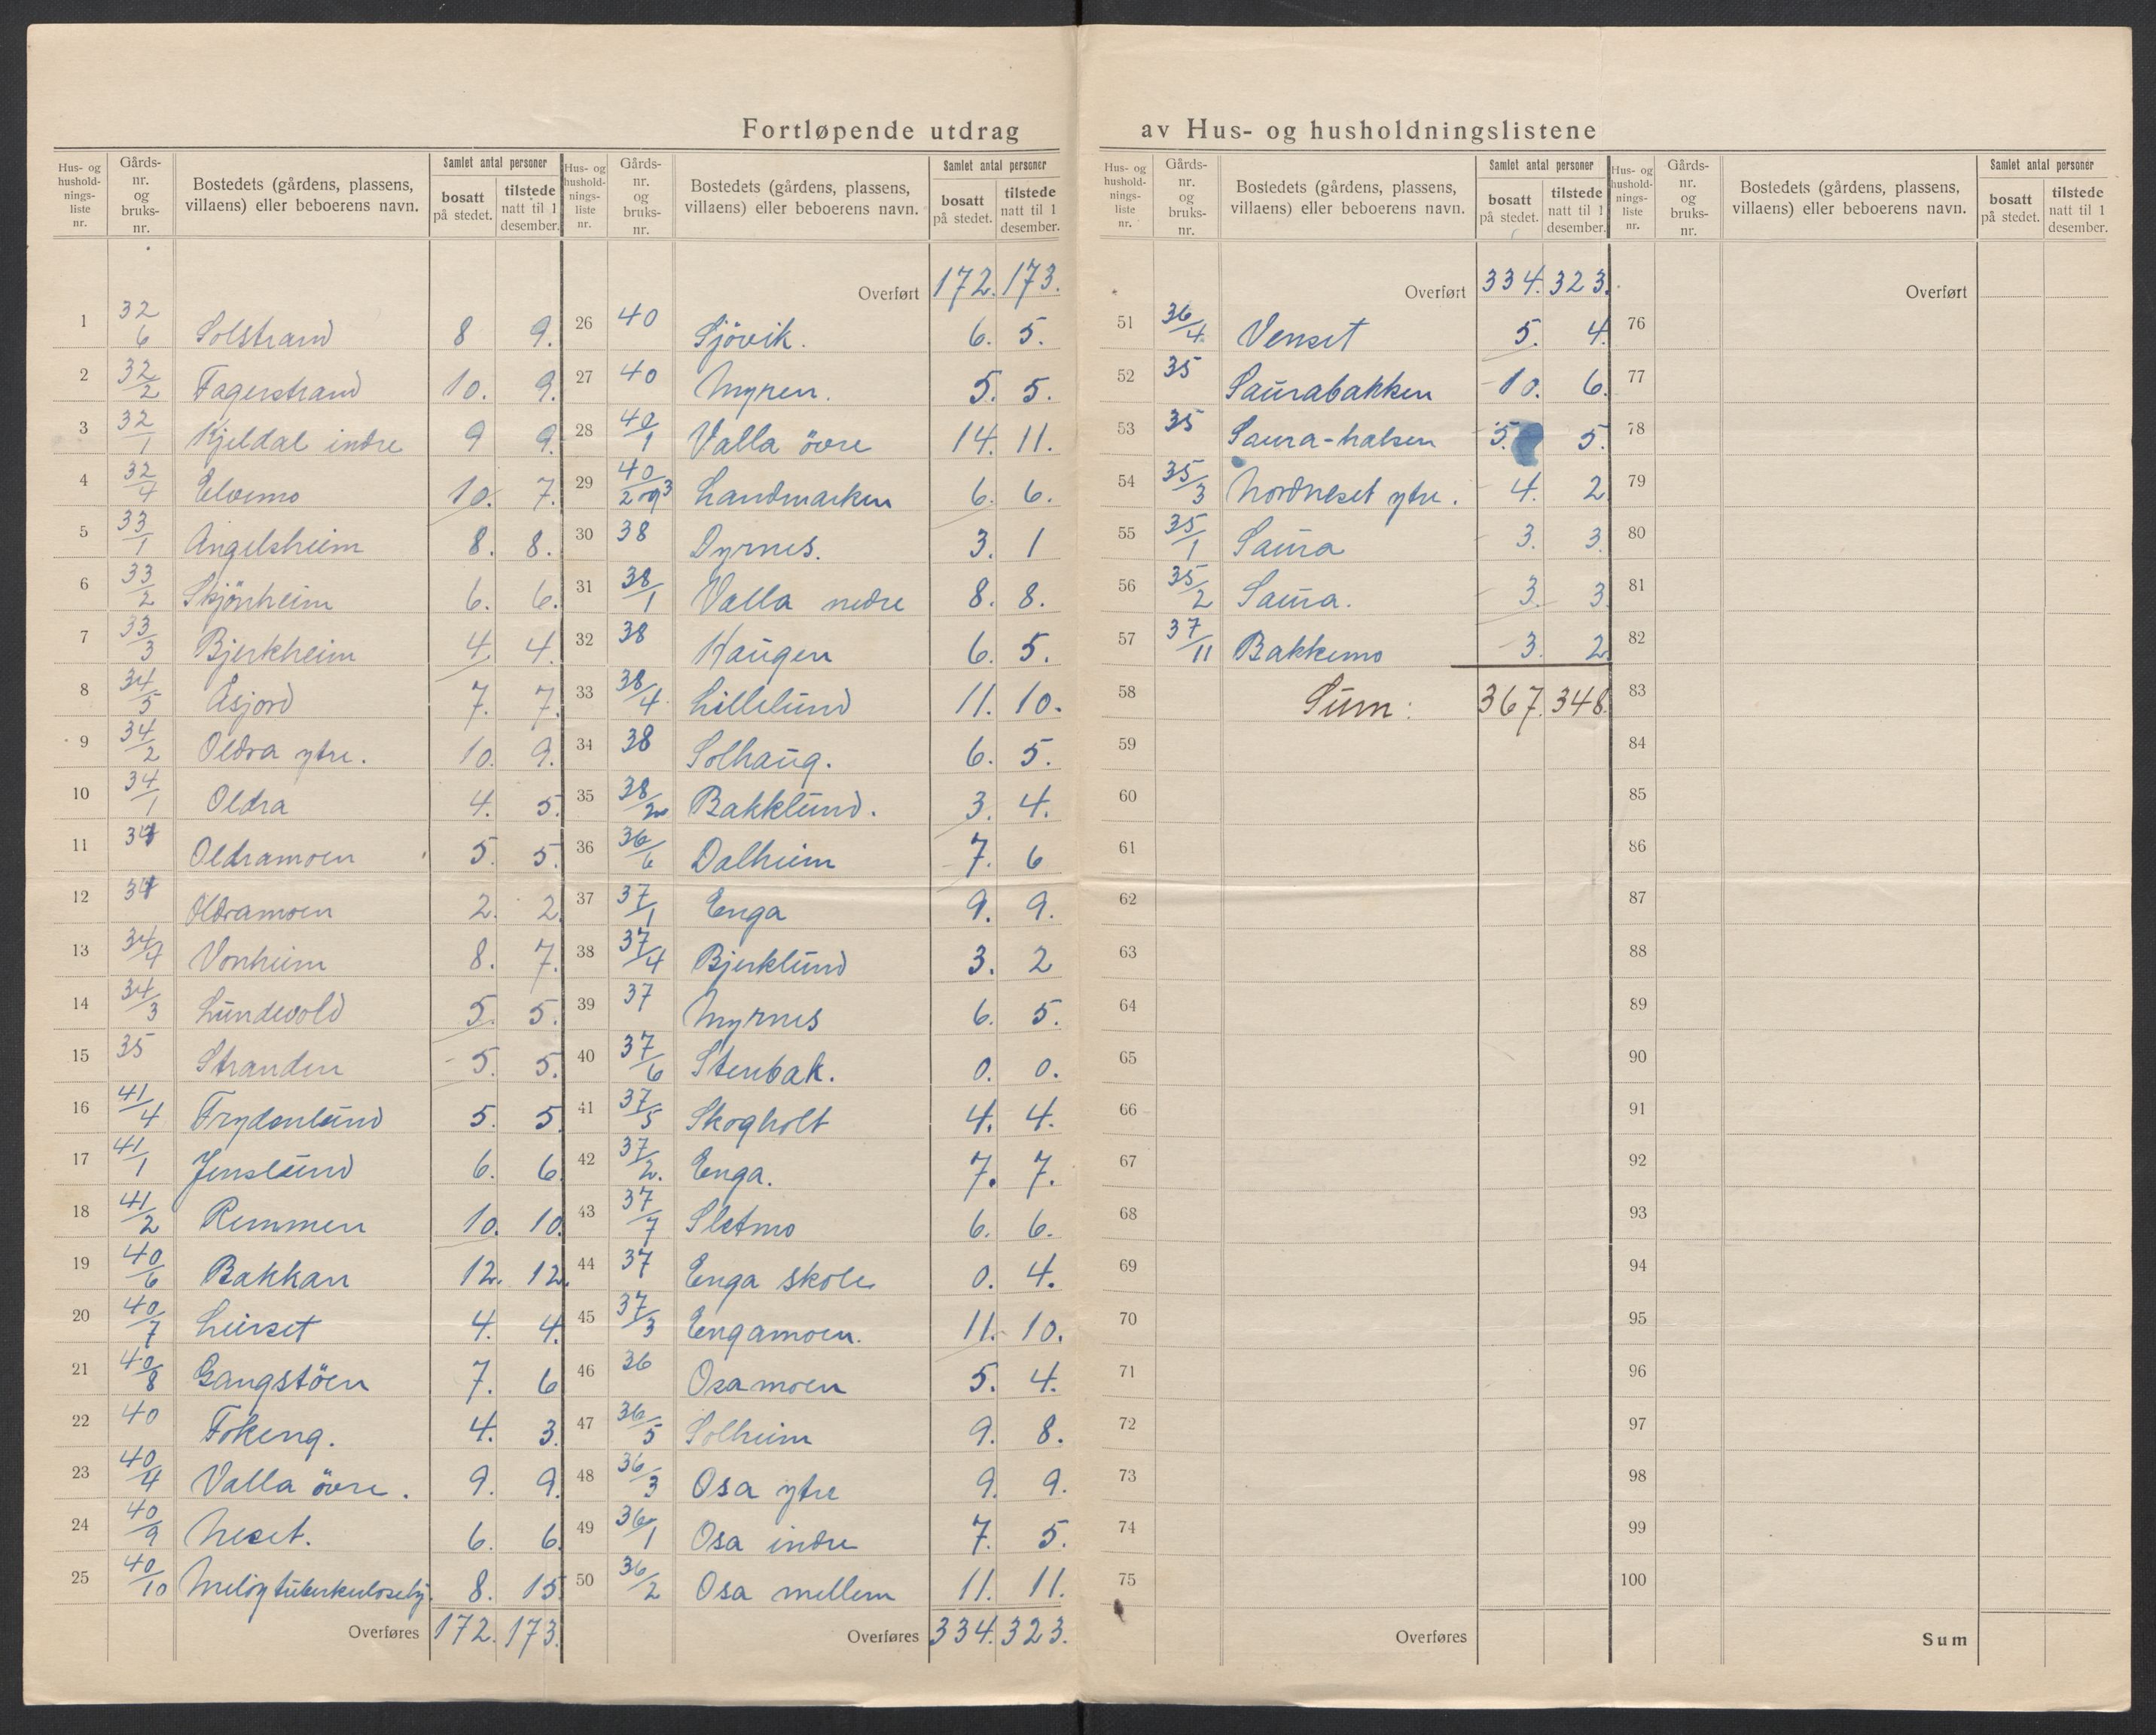 Fortløpende utdrag av Hus- og husholdningslistene
Hus- og hushold-nings-liste nr. Gårds-nr. og bruks-nr. Bostedets (gårdens, plassens, villaens) eller beboerens navn. Samlet antal personer bosatt på stedet. tilstede natt til 1 desember.
1 32/6 Solstrand 8 9.
2 32/2 Fagerstrand 10. 9.
3 32/1 Kjeldal indre 9 9.
4 32/4 Elvemo 10. 7.
5 33/1 Angelsheim 8. 8.
6 33/2 Skjönheim 6. 6.
7 33/3 Bjerkheim 4. 4.
8 34/5 Åsjord 7. 7.
9 34/2 Oldra ytre. 10. 9.
10 34/1 Oldra 4. 5.
11 34 Oldramoen 5. 5.
12 34 Oldramoen 2. 2.
13 34/4 Vonheim 8. 7.
14 34/3 Lundevold 5. 5.
15 35 Stranden 5. 5.
16 41/4 Frydenlund 5. 5
17 41/1 Jenslund 6. 6.
18 41/2 Remmen 10. 10.
19 40/6 Bakkan 12. 12.
20 40/7 Leirset 4. 4.
21 40/8 Gangstöen 7. 6
22 40 Fokeng. 4. 3.
23 40/4 Valla övre. 9. 9.
24 40/9 Neset. 6. 6.
25 40/10 Melöy tuberkulosehj. 8. 15
Overføres 172. 173.
Hus- og hushold-nings-liste nr. Gårds-nr. og bruks-nr. Bostedets (gårdens, plassens, villaens) eller beboerens navn. Samlet antal personer bosatt på stedet. tilstede natt til 1 desember.
Overført 172. 173.
26 40 Sjövik. 6. 5.
27 40 Myren. 5. 5.
28 40/1 Valla övre 14. 11.
29 40/2 og 3 Landmarken 6. 6.
30 38 Dyrnes. 3. 1
31 38/1 Valla nedre 8. 8.
32 38 Haugen 6. 5.
33 38/4 Lillelund 11. 10.
34 38 Solhaug. 6. 5.
35 38/2 Bakklund. 3. 4.
36 36/6 Dalheim 7. 6
37 37/1 Enga 9. 9.
38 37/4 Bjerklund 3. 2
39 37 Myrnes 6. 5.
40 37/6 Stenbak. 0. 0.
41 37/5 Skogholt 4. 4.
42 37/2. Enga. 7. 7.
43 37/7 Sletmo 6. 6.
44 37 Enga skole 0. 4.
45 37/3 Engamoen. 11. 10.
46 36 Osamoen 5. 4.
47 36/5 Solheim 9. 8.
48 36/3 Osa ytre 9. 9.
49 36/1 Osa indre 7. 5.
50 36/2 Osa mellem 11. 11.
Overføres 334. 323.
Hus- og hushold-nings-liste nr. Gårds-nr. og bruks-nr. Bostedets (gårdens, plassens, villaens) eller beboerens navn. Samlet antal personer bosatt på stedet. tilstede natt til 1 desember.
Overført 334. 323.
51 36/4. Venset 5. 4.
52 35 Saurabakken 10. 6.
53 35 Saura-halsen 5. 5.
54 35/3 Nordneset ytre. 4. 2
55 35/1 Saura 3. 3.
56 35/2 Saura. 3. 3
57 37/11 Bakkemo 3. 2
58 Sum: 367. 348.
59
60
61
62
63
64
65
66
67
68
69
70
71
72
73
74
75
Overføres
Hus- og hushold-nings-liste nr. Gårds-nr. og bruks-nr. Bostedets (gårdens, plassens, villaens) eller beboerens navn. Samlet antal personer bosatt på stedet. tilstede natt til 1 desember.
Overført
76
77
78
79
80
81
82
83
84
85
86
87
88
89
90
91
92
93
94
95
96
97
98
99
100
Sum